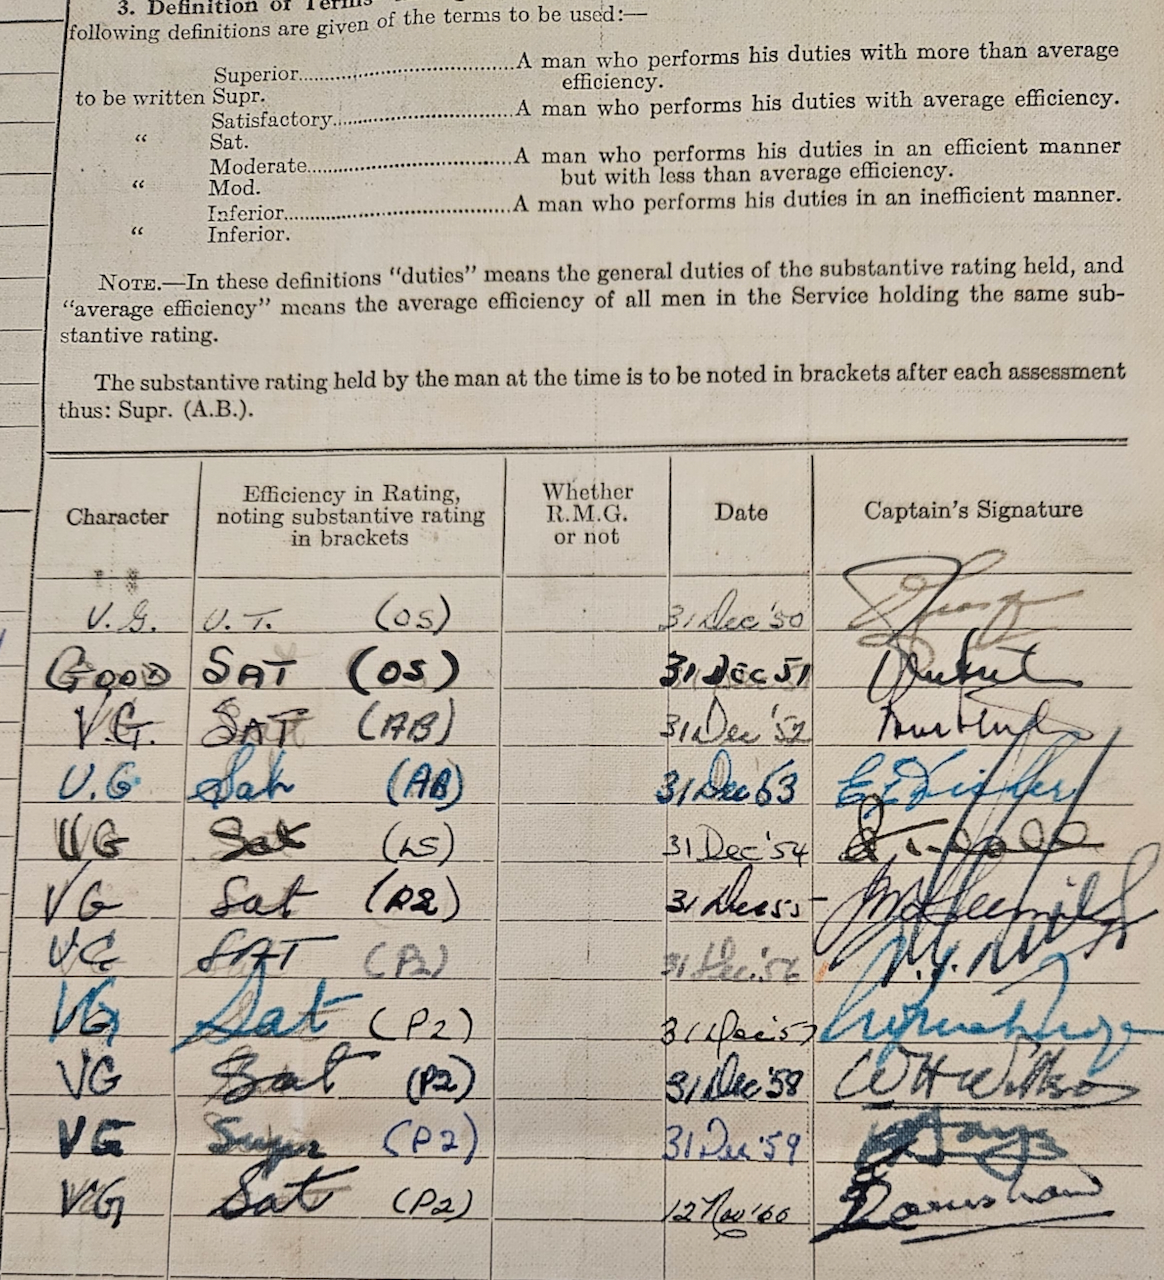 3. Definition of Terms
following definitions are given of the terms to be used:—
Superior..........A man who performs his duties with more than average
efficiency.
to be written Supr.
Satisfactory..........A man who performs his duties with average efficiency.
“ Sat.
Moderate..........A man who performs his duties in an efficient manner
but with less than average efficiency.
“ Mod.
Inferior..........A man who performs his duties in an inefficient manner.
“ Inferior.
NOTE.—In these definitions “duties” means the general duties of the substantive rating held, and
“average efficiency” means the average efficiency of all men in the Service holding the same sub-
stantive rating.
The substantive rating held by the man at the time is to be noted in brackets after each assessment
thus: Supr. (A.B.).
Character Efficiency in Rating, noting substantive rating in brackets Whether R.M.G. or not Date Captain's Signature
V.G. U.T. (OS) 31 Dec '50
GOOD SAT (OS) 31 Dec 51
V.G. SAT (AB) 31 Dec '52
V.G Sat (AB) 31 Dec 53
VG Sat (LS) 31 Dec '54
VG Sat (P2) 31 Dec 55
VG SAT (P2) 31 Dec '56
VG Sat (P2) 31 Dec '57
VG Sat (P2) 31 Dec '58 WH Willson
VG Supr (P2) 31 Dec '59
VG Sat (P2) 12 Nov '60